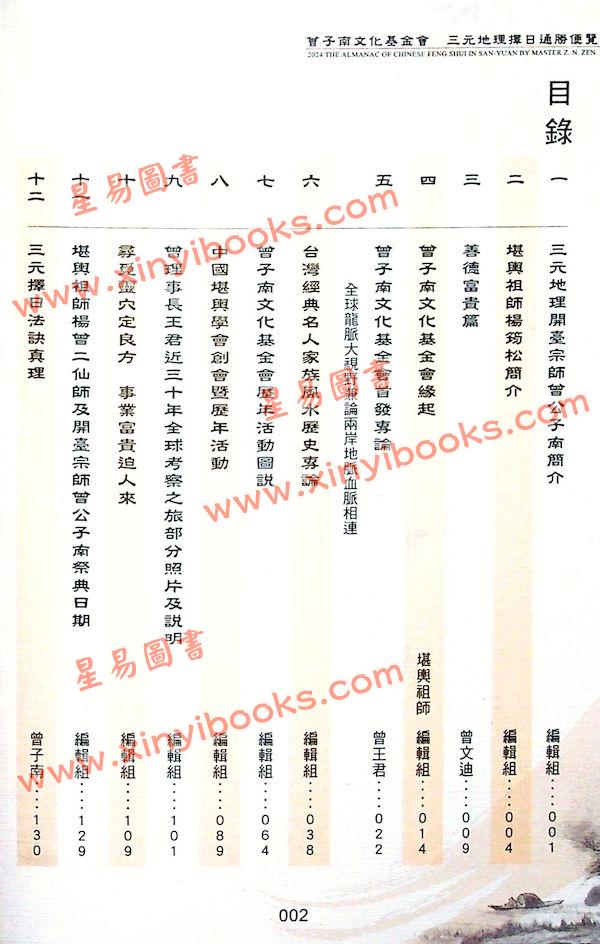 曾子南文化基金會 三元地理擇日通勝便覽
2024 THE ALMANAC OF CHINESE FENG SHUI IN SAN-YUAN BY MASTER Z. N. ZEN
目錄
一 三元地理開臺宗師曾公子南簡介 編輯組....001
二 堪輿祖師楊筠松簡介 編輯組....004
三 善德富貴篇 曾文迪....009
四 曾子南文化基金會緣起 堪輿祖師 編輯組....014
五 曾子南文化基金會首發專論 曾王君....022
全球龍脈大視野兼論兩岸地脈血脈相連
六 台灣經典名人家族風水歷史專論 編輯組....038
七 曾子南文化基金會歷年活動圖說 編輯組....064
八 中國堪輿學會創會暨歷年活動 編輯組....089
九 曾理事長王君近三十年全球考察之旅部分照片及說明 編輯組....101
十 尋覓靈穴定良方 事業富貴迫人來 編輯組....109
十一 堪輿祖師楊曾二仙師及開臺宗師曾公子南祭典日期 編輯組....129
十二 三元擇日法訣真理 曾子南....130
002
星易圖書
www.xinyibooks.com
星易圖書
www.xinyibooks.com
星易圖書
www.xinyibooks.com